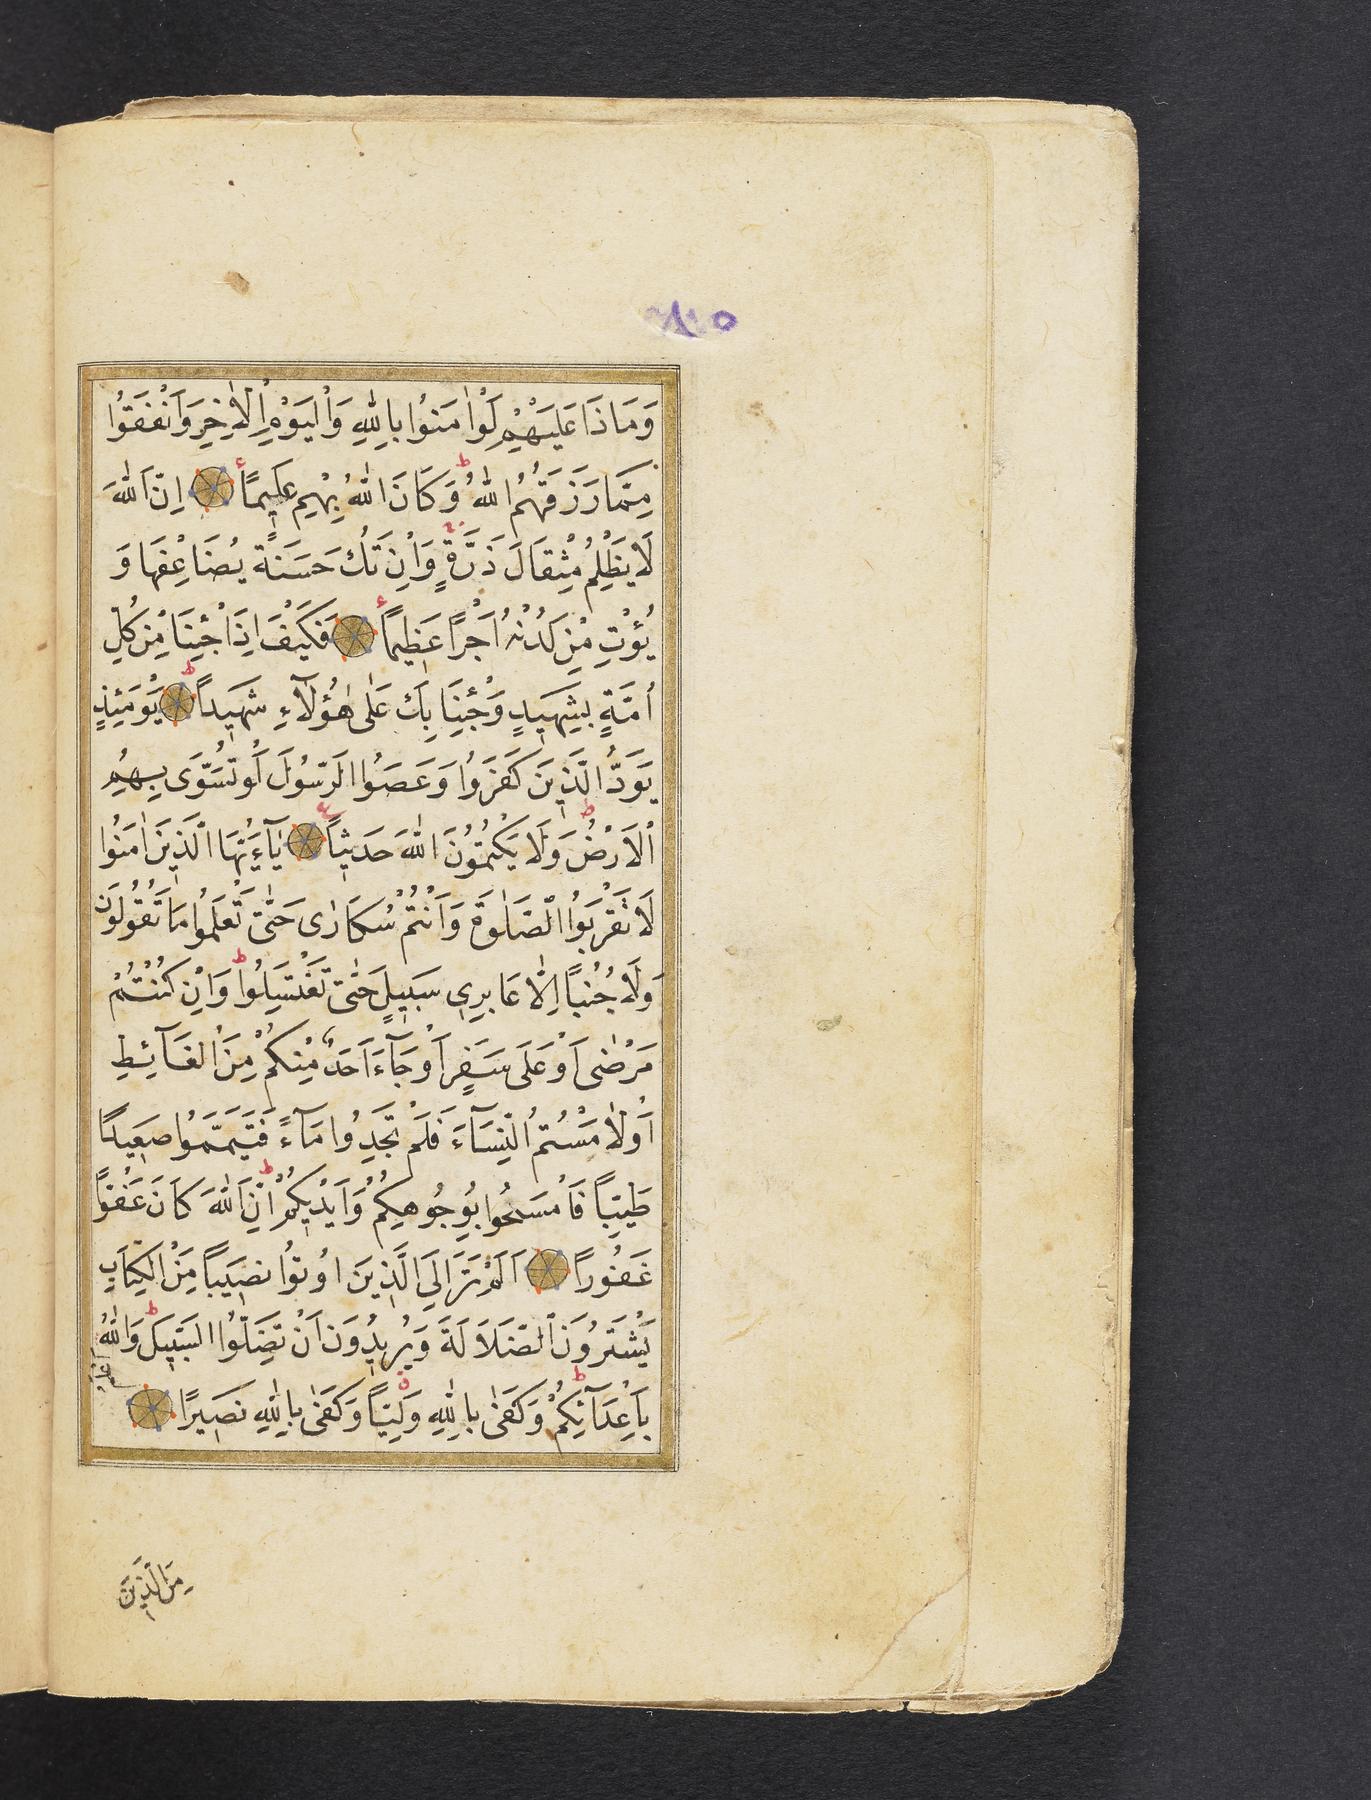 وَمَاذَا عَلَيْهِمْ لَوْ اٰمَنُوا بِاللّٰهِ وَالْيَوْمِ الْاٰخِرِ وَاَنْفَقُوا
مِمَّا رَزَقَهُمُ اللّٰهُ ط وَكَانَ اللّٰهُ بِهِمْ عَلِيمًا اِنَّ اللّٰهَ
لَا يَظْلِمُ مِثْقَالَ ذَرَّةٍ وَاِنْ تَكُ حَسَنَةً يُضَاعِفْهَا وَ
يُؤْتِ مِنْ لَدُنْهُ اَجْرًا عَظِيمًا فَكَيْفَ اِذَا جِئْنَا مِنْ كُلِّ
اُمَّةٍ بِشَهِيدٍ وَجِئْنَا بِكَ عَلٰى هٰؤُلَآءِ شَهِيدًا ط يَوْمَئِذٍ
يَوَدُّ الَّذِينَ كَفَرُوا وَعَصَوُا الرَّسُولَ لَوْ تُسَوّٰى بِهِمُ
الْاَرْضُ ط وَلَا يَكْتُمُونَ اللّٰهَ حَدِيثًا ع يَآ اَيُّهَا الَّذِينَ اٰمَنُوا
لَا تَقْرَبُوا الصَّلٰوةَ وَاَنْتُمْ سُكَارٰى حَتّٰى تَعْلَمُوا مَا تَقُولُونَ
وَلَا جُنُبًا اِلَّا عَابِرِى سَبِيلٍ حَتّٰى تَغْتَسِلُوا ط وَاِنْ كُنْتُمْ
مَرْضٰى اَوْ عَلٰى سَفَرٍ اَوْ جَآءَ اَحَدٌ مِنْكُمْ مِنَ الْغَآئِطِ
اَوْ لٰامَسْتُمُ النِّسَآءَ فَلَمْ تَجِدُوا مَآءً فَتَيَمَّمُوا صَعِيدًا
طَيِّبًا فَامْسَحُوا بِوُجُوهِكُمْ وَاَيْدِيكُمْ ط اِنَّ اللّٰهَ كَانَ عَفُوًّا
غَفُورًا اَلَمْ تَرَ اِلَى الَّذِينَ اُوتُوا نَصِيبًا مِنَ الْكِتَابِ
يَشْتَرُونَ الضَّلَالَةَ وَيُرِيدُونَ اَنْ تَضِلُّوا السَّبِيلَ ط وَاللّٰهُ
اَعْلَمُ
بِاَعْدَآئِكُمْ ط وَكَفٰى بِاللّٰهِ وَلِيًّا وَكَفٰى بِاللّٰهِ نَصِيرًا
مِنَ الَّذِينَ